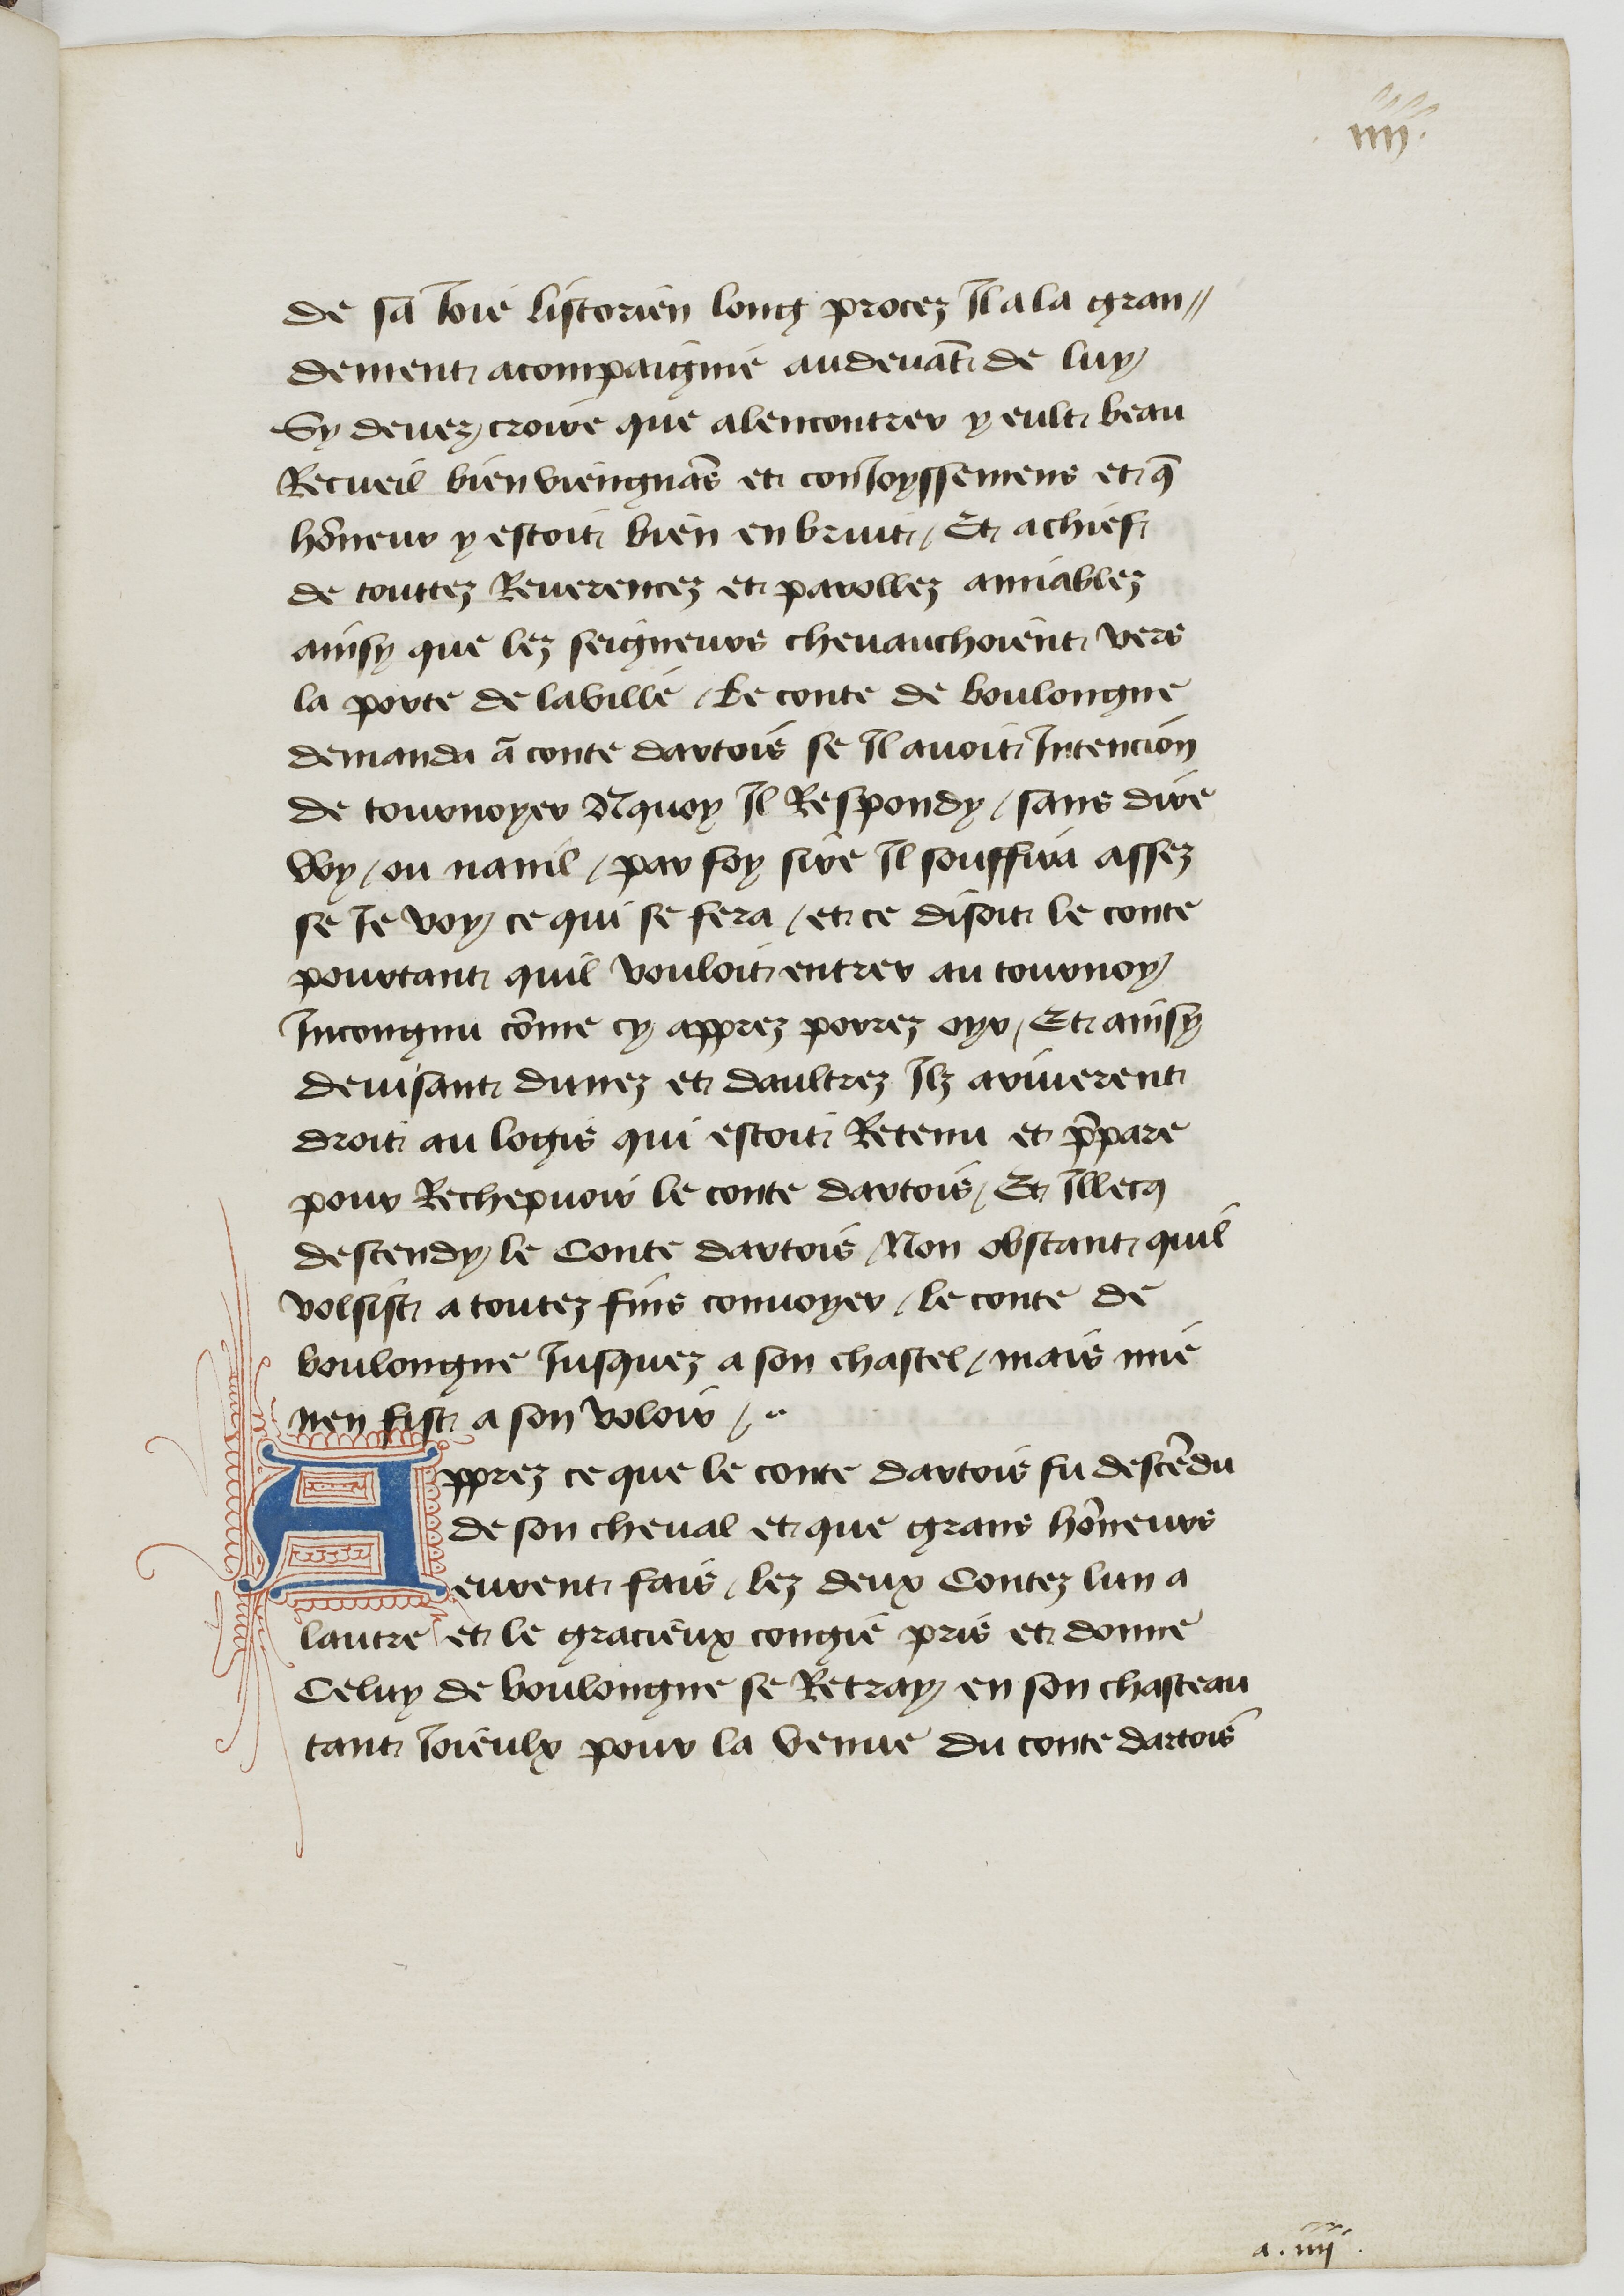 .iiij.
de sã Ioie listorien long procez Il ala gran//
dement acompaignié audeuãt de luy
Sy deuez croire que alencontrer y eult beau
Recueil bien viengnãs et conIoyssemens et q̃
hõneur y estoit bien en bruit / Et achief
de touttez Reuerencez et parollez amiablez
ainsy que lez seigneurs cheuauchoient vers
la porte de laville / Le conte de boulongne
demanda ã conte dartois se Il auoit Intencion
de tournoyer Aquoy Il Respondy / sans dire
wy / ou nanil / par foy sire Il souffira assez
se Ie voy ce qui se fera / et ce disoit le conte
pourtant quil vouloit entrer au tournoy
Incongnu cõme cy apprez porrez oyr / Et ainsy
deuisant dunez et daultrez Ilz ariuerent
droit au logis qui estoit Retenu et p̃pare
pour Rechepuoir le conte dartois / Et Illecq
descendy le Conte dartois / Non obstant quil
volsist a toutez fins conuoyer / le conte de
boulongne Iusquez a son chastel / mais mie
nen fist a son voloir /.
Apprez ce que le conte dartois fu descẽdu
de son cheual et que grans hõneurs
eurent fais / lez deux Contez lun a
lautre et le gracieux congié pris et donne
Celuy de boulongne se Retray en son chasteau
tant Ioieulx pour la venue du conte dartois
a.iiij.